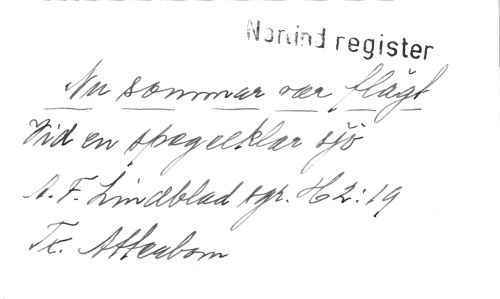 Norlind register
Nu sommar var flägt
Vid en spegelklar sjö
A. F. Lindblad sgr. H 2:19
Tx. Atterbom